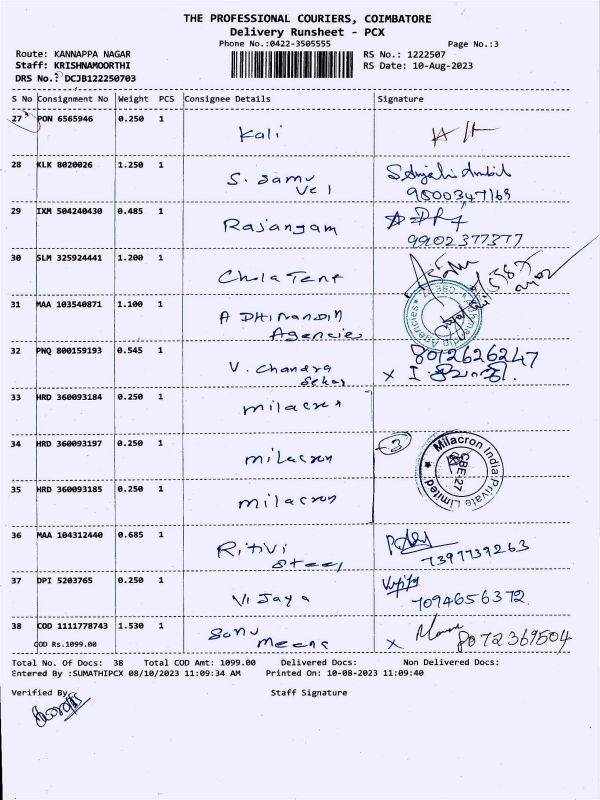 THE PROFESSIONAL COURIERS, COIMBATORE
Delivery Runsheet - PCX
Phone No.:0422-3505555
Page No.:3
Route: KANNAPPA NAGAR
RS No.: 1222507
Staff: KRISHNAMOORTHI
RS Date: 10-Aug-2023
DRS No.: DCJB122250703
S No Consignment No Weight PCS Consignee Details Signature
27 PON 6565946 0.250 1 Kali
28 KLK 8020026 1.250 1 S. Samu
Vel
9500347169
29 IXM 504240430 0.485 1 Rajangam
9902377377
30 SLM 325924441 1.200 1 Chola Tent
31 MAA 103540871 1.100 1 ADHINANDIN
Agencies
32 PNQ 800159193 0.545 1 V. Chandra
Sekar
8012626247
x
33 HRD 360093184 0.250 1 milacron
34 HRD 360093197 0.250 1 milacron
3
Milacron India Private Limited
CBE-27
35 HRD 360093185 0.250 1 milacron
36 MAA 104312440 0.685 1 Ritivi
Steel
7397739263
37 DPI 5203765 0.250 1 Vijaya
7094656372
38 COD 1111778743 1.530 1 Sonu
Meena
x 8072369504
COD Rs.1099.00
Total No. Of Docs: 38 Total COD Amt: 1099.00 Delivered Docs: Non Delivered Docs:
Entered By :SUMATHIPCX 08/10/2023 11:09:34 AM Printed On: 10-08-2023 11:09:40
Verified By
Staff Signature